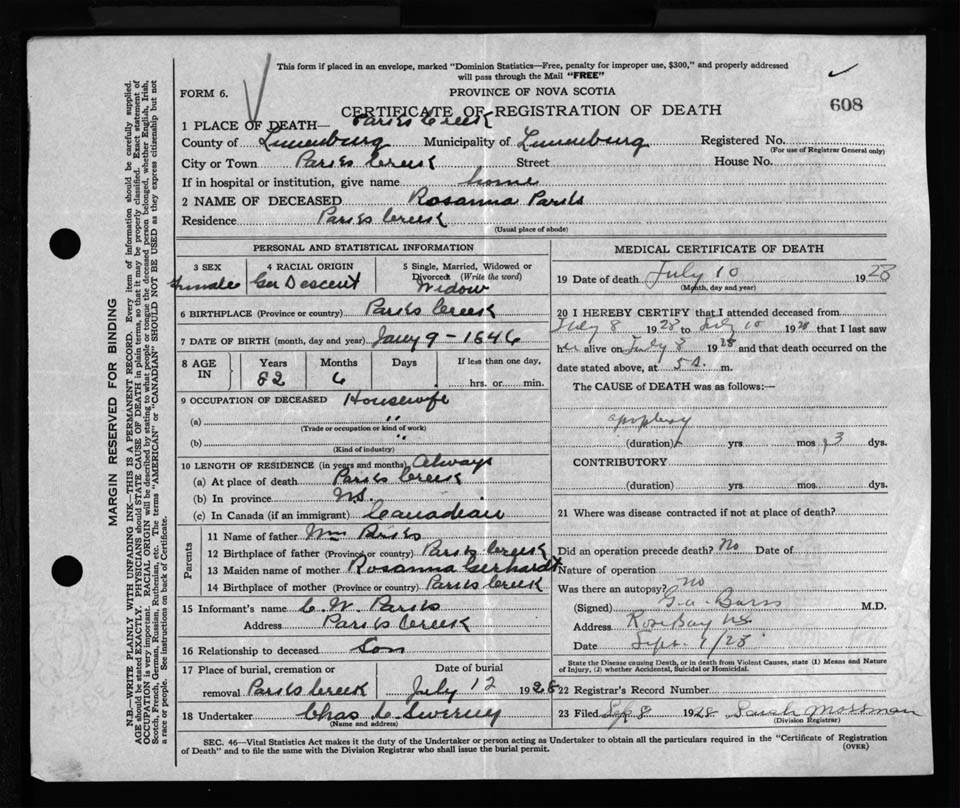 This form if placed in an envelope, marked "Dominion Statistics—Free, penalty for improper use, $300," and properly addressed
will pass through the Mail "FREE"
FORM 6.
PROVINCE OF NOVA SCOTIA
CERTIFICATE OF REGISTRATION OF DEATH
608
1 PLACE OF DEATH— Parks Creek
County of Lunenburg Municipality of Lunenburg Registered No.
(For use of Registrar General only)
City or Town Parks Creek Street House No.
If in hospital or institution, give name home
2 NAME OF DECEASED Rosanna Parks
Residence Parks Creek
(Usual place of abode)
PERSONAL AND STATISTICAL INFORMATION
3 SEX 4 RACIAL ORIGIN 5 Single, Married, Widowed or
Divorced (Write the word)
Female Ger Descent Widow
6 BIRTHPLACE (Province or country) Parks Creek
7 DATE OF BIRTH (month, day and year) Jany 9 - 1846
8 AGE IN Years Months Days If less than one day,
82 6 hrs. or min.
9 OCCUPATION OF DECEASED Housewife
(a) "
(Trade or occupation or kind of work)
(b) "
(Kind of industry)
10 LENGTH OF RESIDENCE (in years and months) Always
(a) At place of death Parks Creek
(b) In province N.S.
(c) In Canada (if an immigrant) Canadian
Parents
11 Name of father Wm Parks
12 Birthplace of father (Province or country) Parks Creek
13 Maiden name of mother Rosanna Gerhardt
14 Birthplace of mother (Province or country) Parks Creek
15 Informant's name C. W. Parks
Address Parks Creek
16 Relationship to deceased Son
17 Place of burial, cremation or Date of burial
removal Parks Creek July 12 1928
18 Undertaker Chas L Sweeny
(Name and address)
MEDICAL CERTIFICATE OF DEATH
19 Date of death July 10 1928
(Month, day and year)
20 I HEREBY CERTIFY that I attended deceased from
July 8 1928 to July 10 1928 that I last saw
her alive on July 8 1928 and that death occurred on the
date stated above, at 5 a. m.
The CAUSE of DEATH was as follows:—
apoplexy
(duration) yrs. mos. 3 dys.
CONTRIBUTORY
(duration) yrs. mos. dys.
21 Where was disease contracted if not at place of death?
Did an operation precede death? No Date of
Nature of operation
Was there an autopsy? no
(Signed) M.D.
Address Rose Bay N.S.
Date Sept. 1/28
State the Disease causing Death, or in death from Violent Causes, state (1) Means and Nature
of Injury, (2) whether Accidental, Suicidal or Homicidal.
22 Registrar's Record Number
23 Filed Sep 8 1928 Sarah Mossman
(Division Registrar)
SEC. 46—Vital Statistics Act makes it the duty of the Undertaker or person acting as Undertaker to obtain all the particulars required in the "Certificate of Registration
of Death" and to file the same with the Division Registrar who shall issue the burial permit.
(OVER)
MARGIN RESERVED FOR BINDING
N.B.—WRITE PLAINLY WITH UNFADING INK—THIS IS A PERMANENT RECORD. Every item of information should be carefully supplied.
AGE should be stated EXACTLY. PHYSICIANS should STATE CAUSE OF DEATH in plain terms, so that it may be properly classified. Exact statement of
OCCUPATION is very important. RACIAL ORIGIN will be described by stating to what people or tongue the deceased person belonged, whether English, Irish,
Scotch, French, German, Russian, Ruthenian, etc. The terms "AMERICAN" or "CANADIAN" SHOULD NOT BE USED as they express citizenship but not
a race or people. See instructions on back of Certificate.